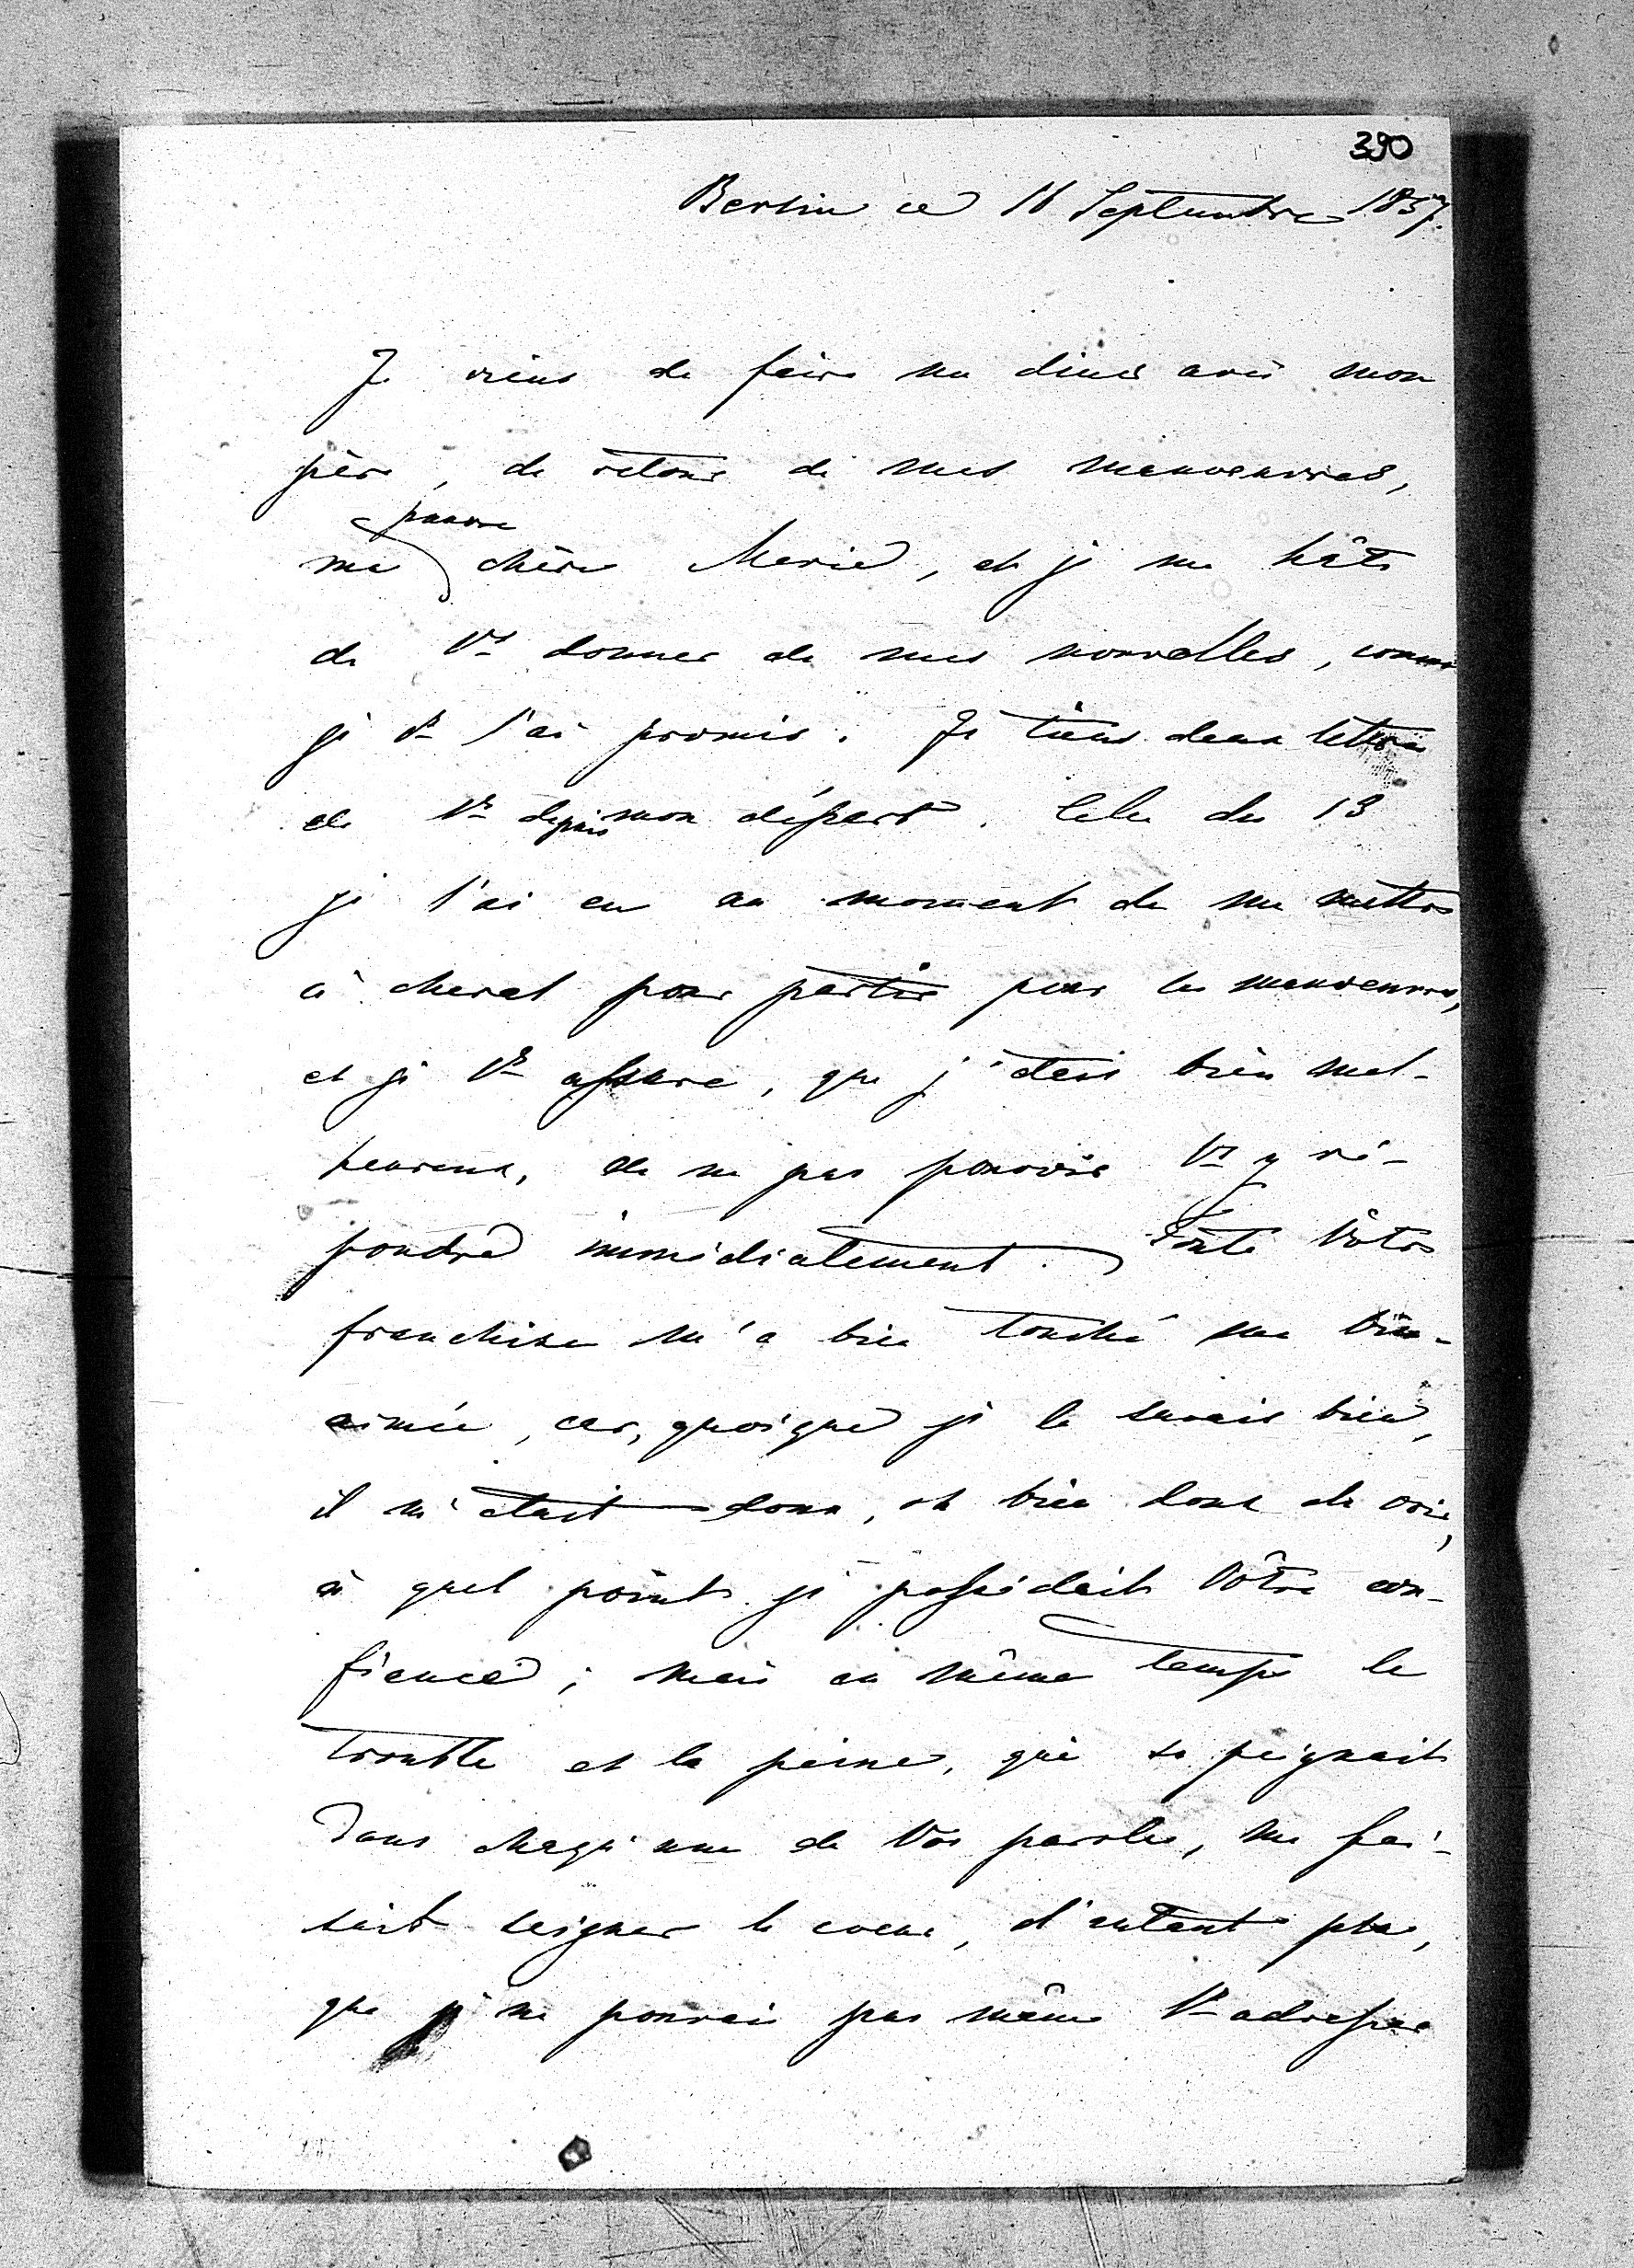 390
Berlin ce 16 Septembre 1857.
Je viens de faire un diner avec mon
père, de retour de mes manoeuvres,
pauvre
ma chère Marie, et je me hâte
de Vs donner de mes nouvelles, comme
je Vs l'ai promis. Je tiens deux lettres
de Vs depuis mon départ. Celle du 13
je l'ai eu au moment de me mettre
à cheval pour partir pour les manoeuvres,
et je Vs assure, que j'étais bien mal-
heureux, de ne pas pouvoir Vs y ré-
pondre immédiatement. Toute Vôtre
franchise m'a bien touché ma bien-
aimée, car, quoique je le savais bien,
il m'était doux, et bien doux de voir,
à quel point je possédait Vôtre con-
fiance; mais en même temps le
trouble et la peine, qui se peignait
dans chaqu'une de Vos paroles, me fai-
sait seigner le coeur, d'autant plus,
que je ne pouvais pas même Vs adresser